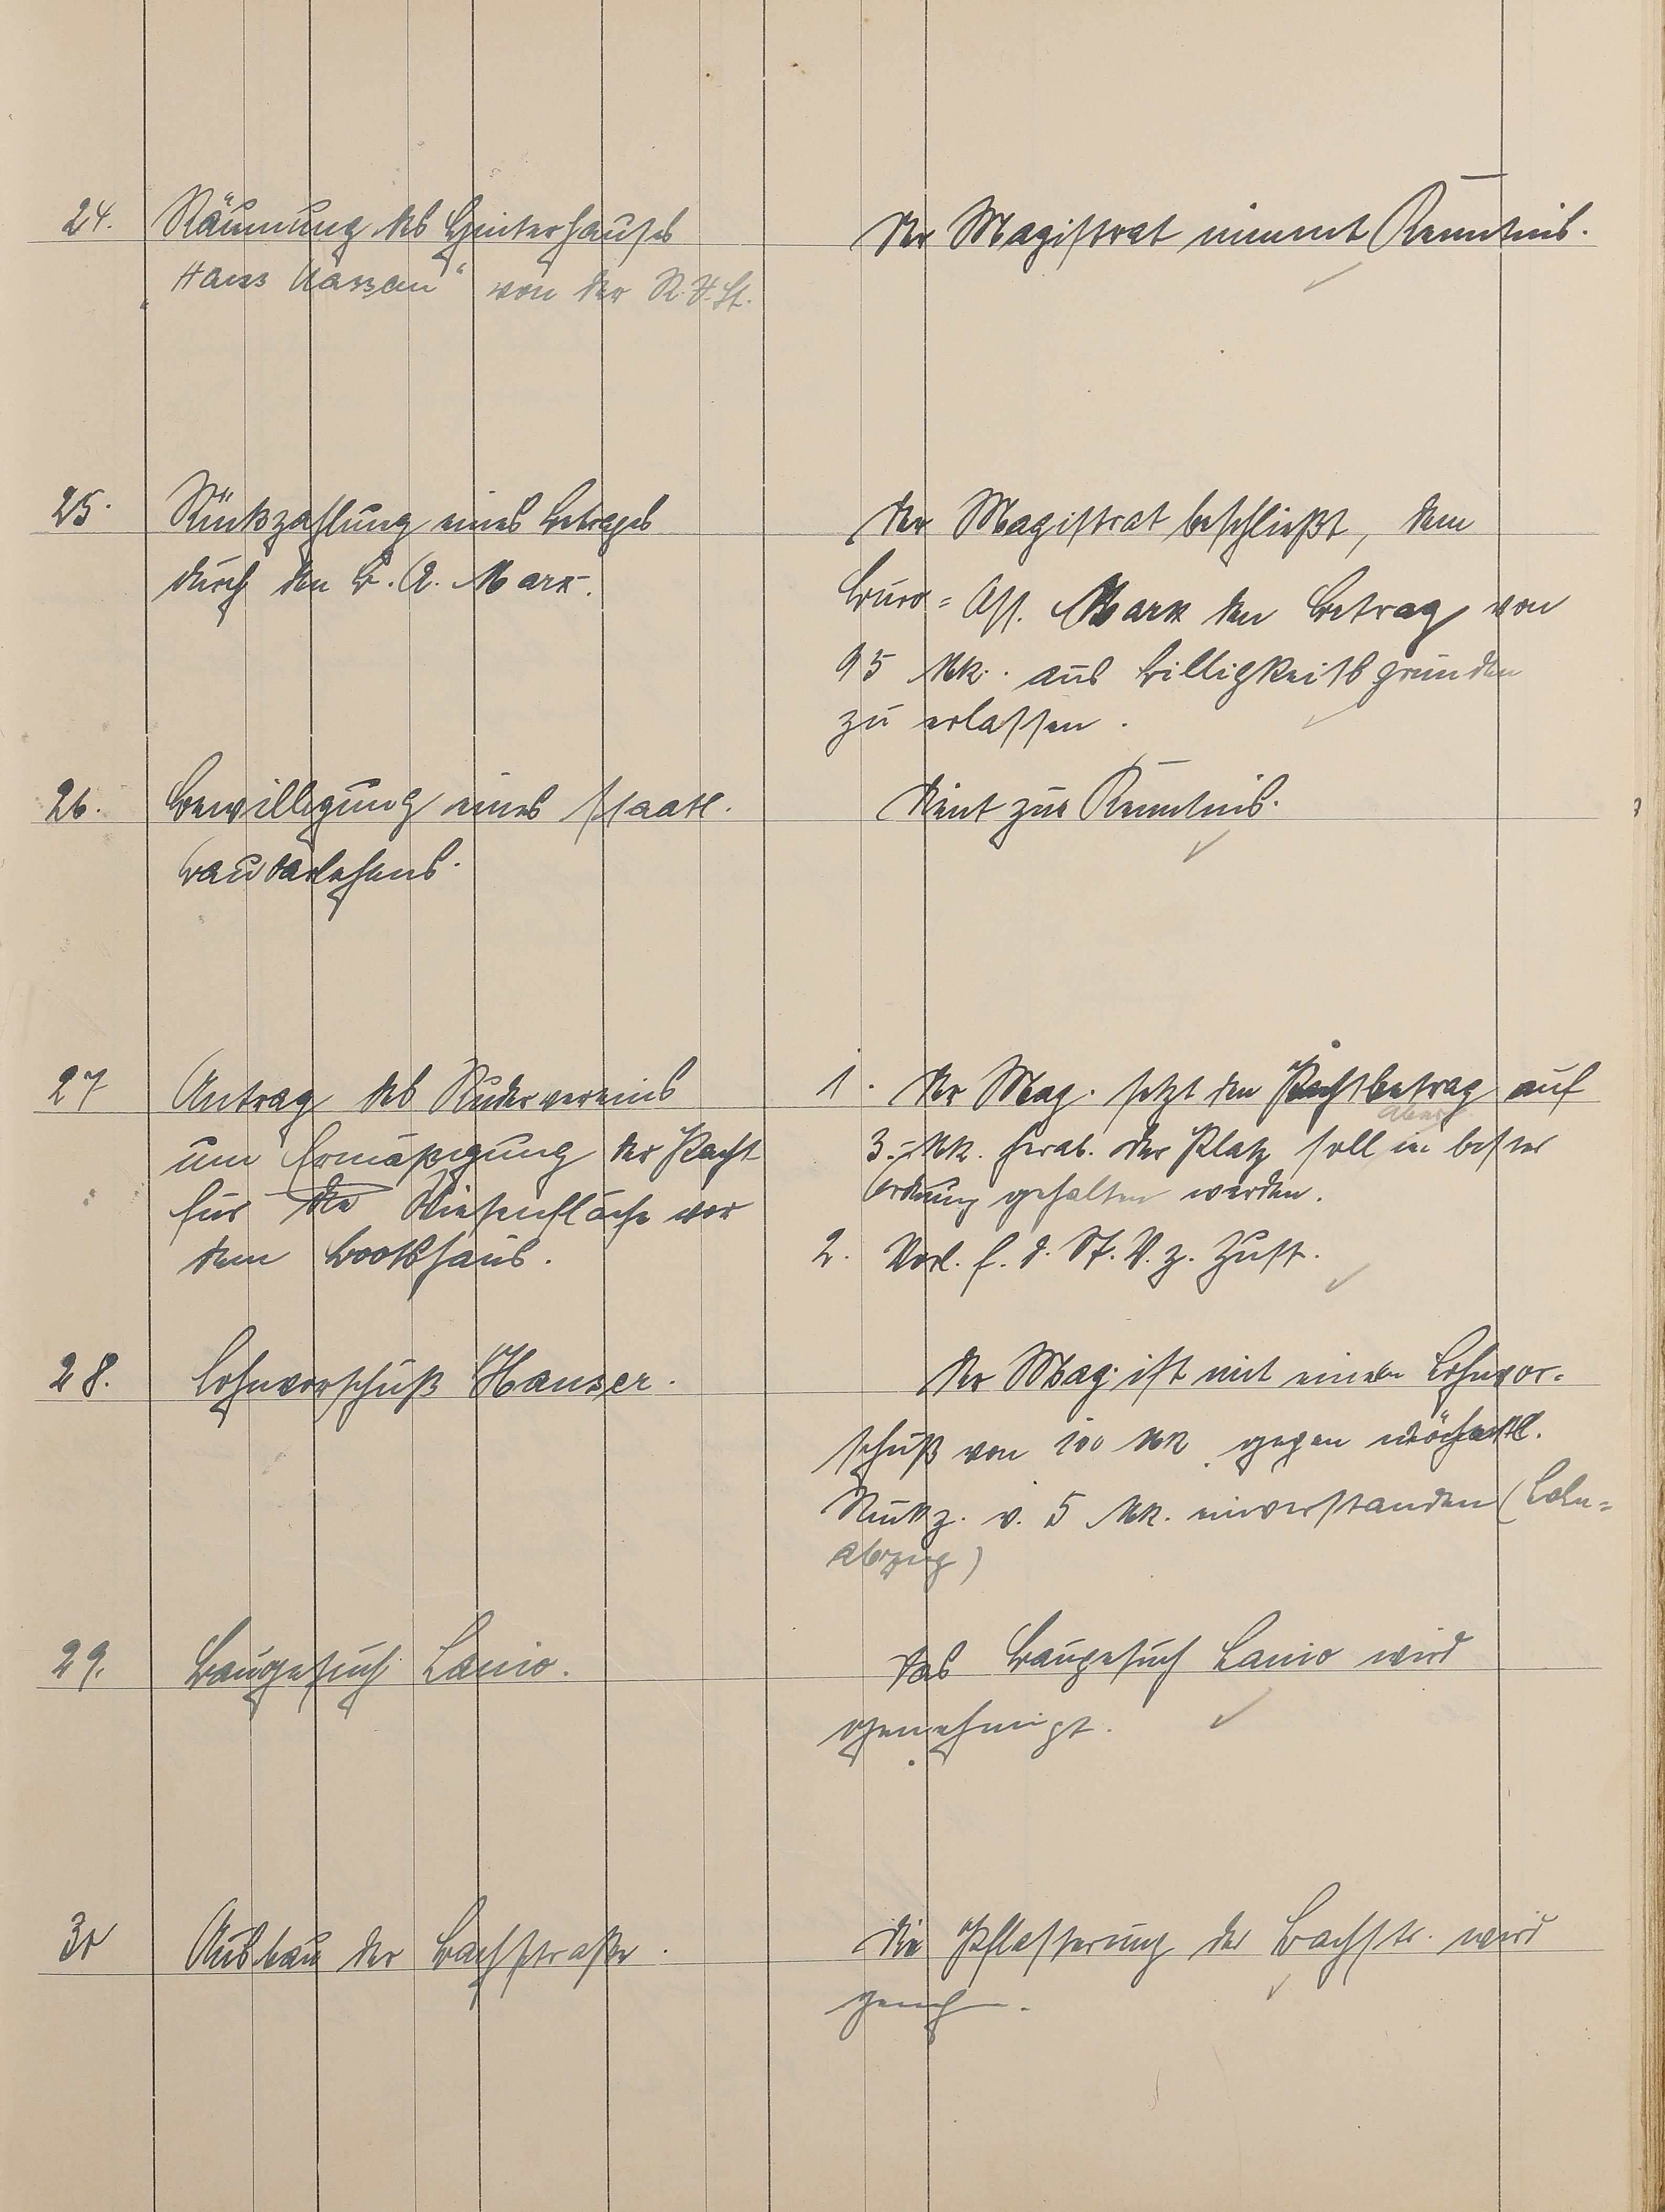 24. Räumung des Hinterhauses
„Haus Nassau" von der R.V.St.
Der Magistrat nimmt Kenntnis.
25. Rückzahlung eines Betrages
durch den B.A. Marx.
Der Magistrat beschließt, dem
Büro-Ass. Marx den Betrag von
95 Mk. aus Billigkeitsgründen
zu erlassen.
26. Bewilligung eines staatl.
Baudarlehens.
Dient zur Kenntnis.
27 Antrag des Rudervereins
um Ermäßigung der Pacht
für die Wiesenfläche vor
dem Bootshaus.
1. Der Mag. setzt den Pachtbetrag auf
3.- Mk. herab. Der Platz soll aber in bester
Ordnung gehalten werden.
2. Vorl. f. d. St.V. z. Zust.
28. Lohnvorschuß Hauser.
Der Mag. ist mit einem Lohnvor-
schuß von 100 Mk gegen wöchentl.
Rückz. v. 5 Mk. einverstanden (Lohn-
abzug)
29. Baugesuch Lanio.
Das Baugesuch Lanio wird
genehmigt.
30 Ausbau der Bachstraße.
Die Pflasterung der Bachstr. wird
genehm.